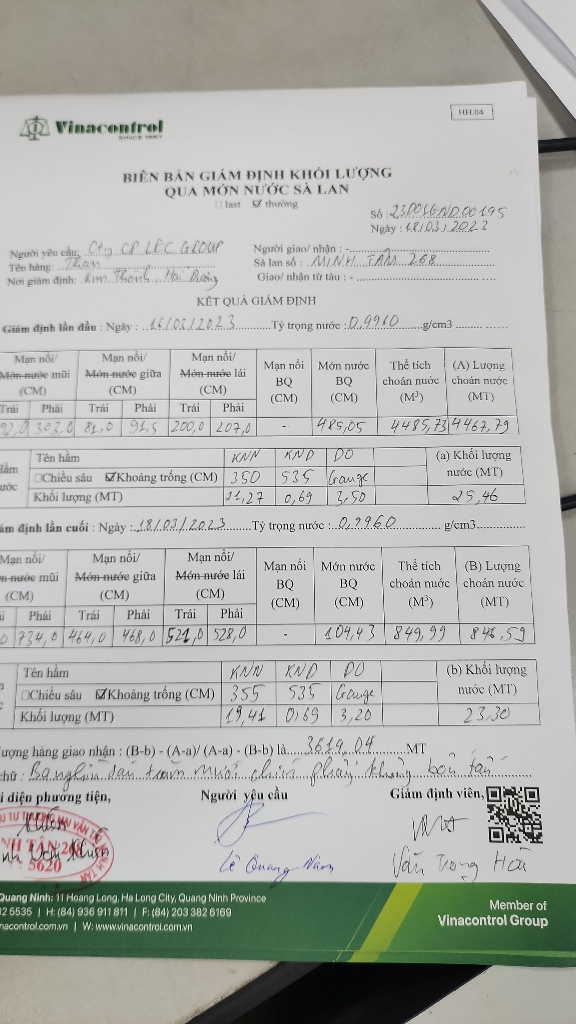 Vinacontrol
SINCE 1957
HH.04
BIÊN BẢN GIÁM ĐỊNH KHỐI LƯỢNG
QUA MỚN NƯỚC SÀ LAN
□ last ☑ thường
Số : 23D01GND00195
Ngày : 18/03/2023
Người yêu cầu: Cty CP LFC GROUP
Người giao/ nhận : -
Tên hàng: Than
Sà lan số : MINH TÂM 268
Nơi giám định: Kim Thành, Hải Dương
Giao/ nhận từ tàu : -
KẾT QUẢ GIÁM ĐỊNH
Giám định lần đầu : Ngày : 16/03/2023 Tỷ trọng nước : 0,9960 g/cm3
Mạn nổi/ Mạn nổi/ Mạn nổi/ Mạn nổi Mớn nước Thể tích (A) Lượng
Mớn nước mũi Mớn nước giữa Mớn nước lái BQ BQ choán nước choán nước
(CM) (CM) (CM) (CM) (CM) (M³) (MT)
Trái Phải Trái Phải Trái Phải
92,0 303,0 81,0 91,5 200,0 207,0 - 485,05 4485,73 4467,79
Tên hầm KNN KND DO (a) Khối lượng
□Chiều sâu ☑Khoảng trống (CM) 350 535 Gauge nước (MT)
Khối lượng (MT) 21,27 0,69 3,50 25,46
ám định lần cuối : Ngày : 18/03/2023 Tỷ trọng nước : 0,9960 g/cm3
Mạn nổi/ Mạn nổi/ Mạn nổi/ Mạn nổi Mớn nước Thể tích (B) Lượng
nước mũi Mớn nước giữa Mớn nước lái BQ BQ choán nước choán nước
(CM) (CM) (CM) (CM) (CM) (M³) (MT)
Phải Trái Phải Trái Phải
734,0 464,0 468,0 521,0 528,0 - 104,43 849,99 846,59
Tên hầm KNN KND DO (b) Khối lượng
□Chiều sâu ☑Khoảng trống (CM) 355 535 Gauge nước (MT)
Khối lượng (MT) 19,41 0,69 3,20 23,30
ượng hàng giao nhận : (B-b) - (A-a)/ (A-a) - (B-b) là 3619,04 MT
chữ : Ba nghìn sáu trăm mười chín phẩy không bốn tấn
i diện phương tiện, Người yêu cầu Giám định viên,
5620
Lê Quang Năm
Văn Trọng Hoà
Quang Ninh: 11 Hoang Long, Ha Long City, Quang Ninh Province
2 5535 | H: (84) 936 911 811 | F: (84) 203 382 6169
nacontrol.com.vn | W: www.vinacontrol.com.vn
Member of
Vinacontrol Group